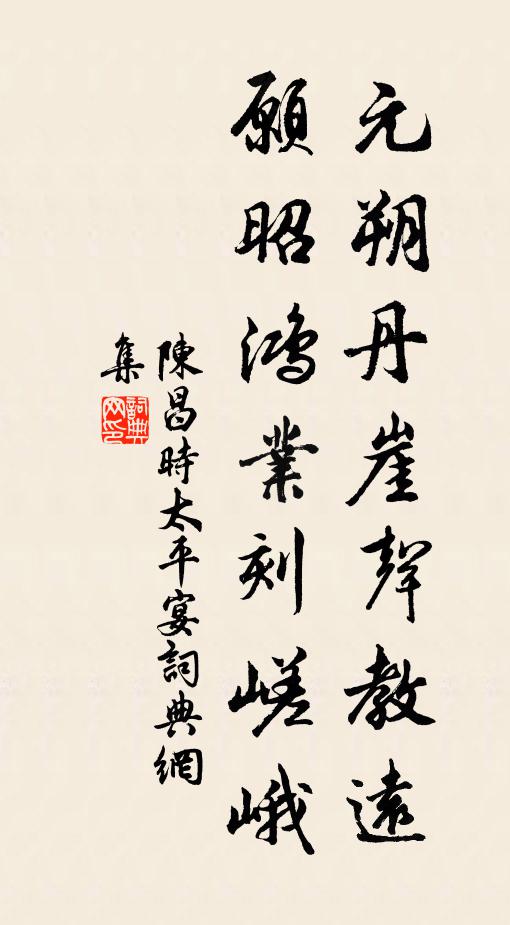 元朔丹崖聲教遠
願昭鴻業刻嵯峨
陳昌時太平宴詞典網
集
詞典
网印